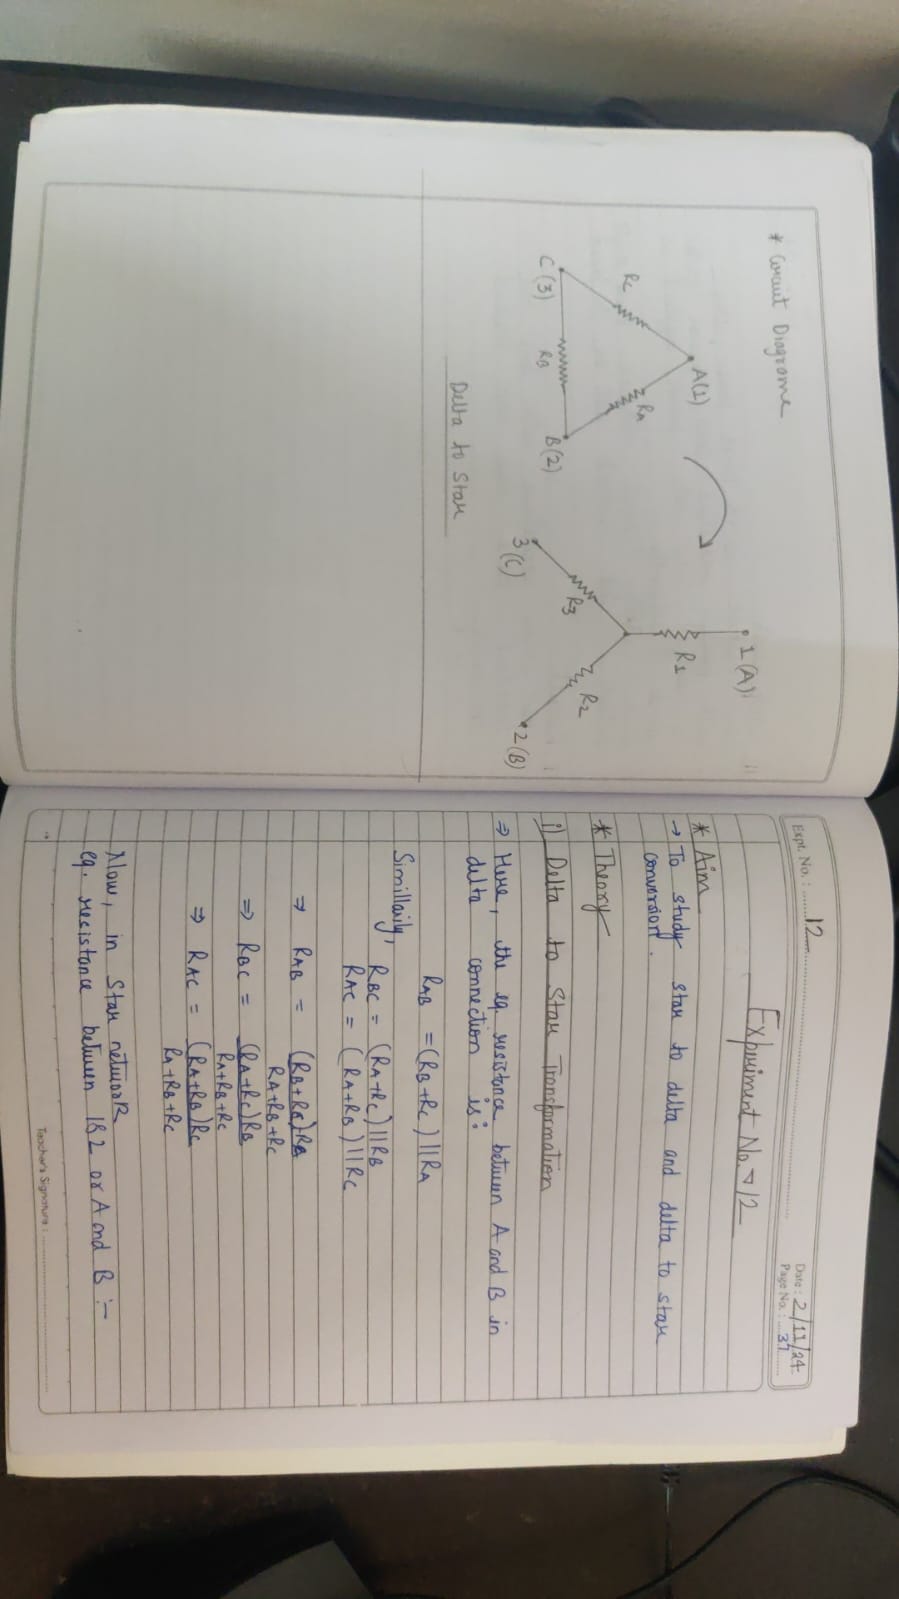 * Circuit Diagrame
A(1)
RC
RA
C(3)
RB
B(2)
1(A)
R1
R3
R2
3(C)
2(B)
Delta to Star
Expt. No. : 12
Date : 2/11/24
Page No. : 37
Experiment No. 12
* Aim
→ To study star to delta and delta to star
conversion.
* Theory
i) Delta to Star Transformation
⇒ Here, the eq. resistance between A and B in
delta connection is:
RAB = (RB+RC) || RA
Simillarily,
RBC = (RA+RC) || RB
RAC = (RA+RB) || RC
⇒ RAB = (RB+RC)RA
RA+RB+RC
⇒ RBC = (RA+RC)RB
RA+RB+RC
⇒ RAC = (RA+RB)RC
RA+RB+RC
Now, in Star network
eq. resistance between 1&2 or A and B :-
Teacher's Signature :